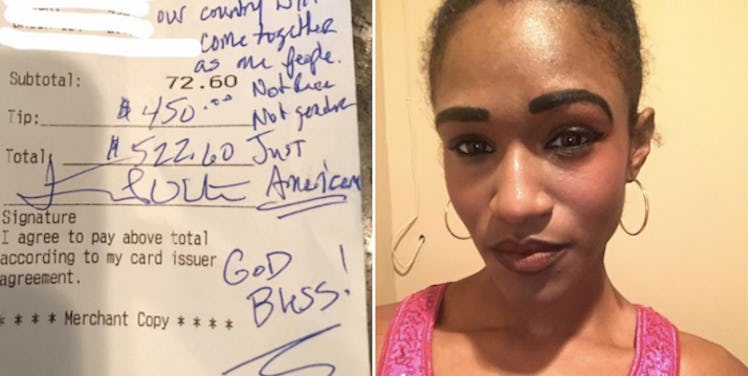 our country will
come together
as one people.
Subtotal: 72.60
Not Race
Tip: $450.00
Not gender
Total $522.60 Just
American
Signature
I agree to pay above total
according to my card issuer
agreement.
GOD
Bless!
* * * * Merchant Copy * * * *